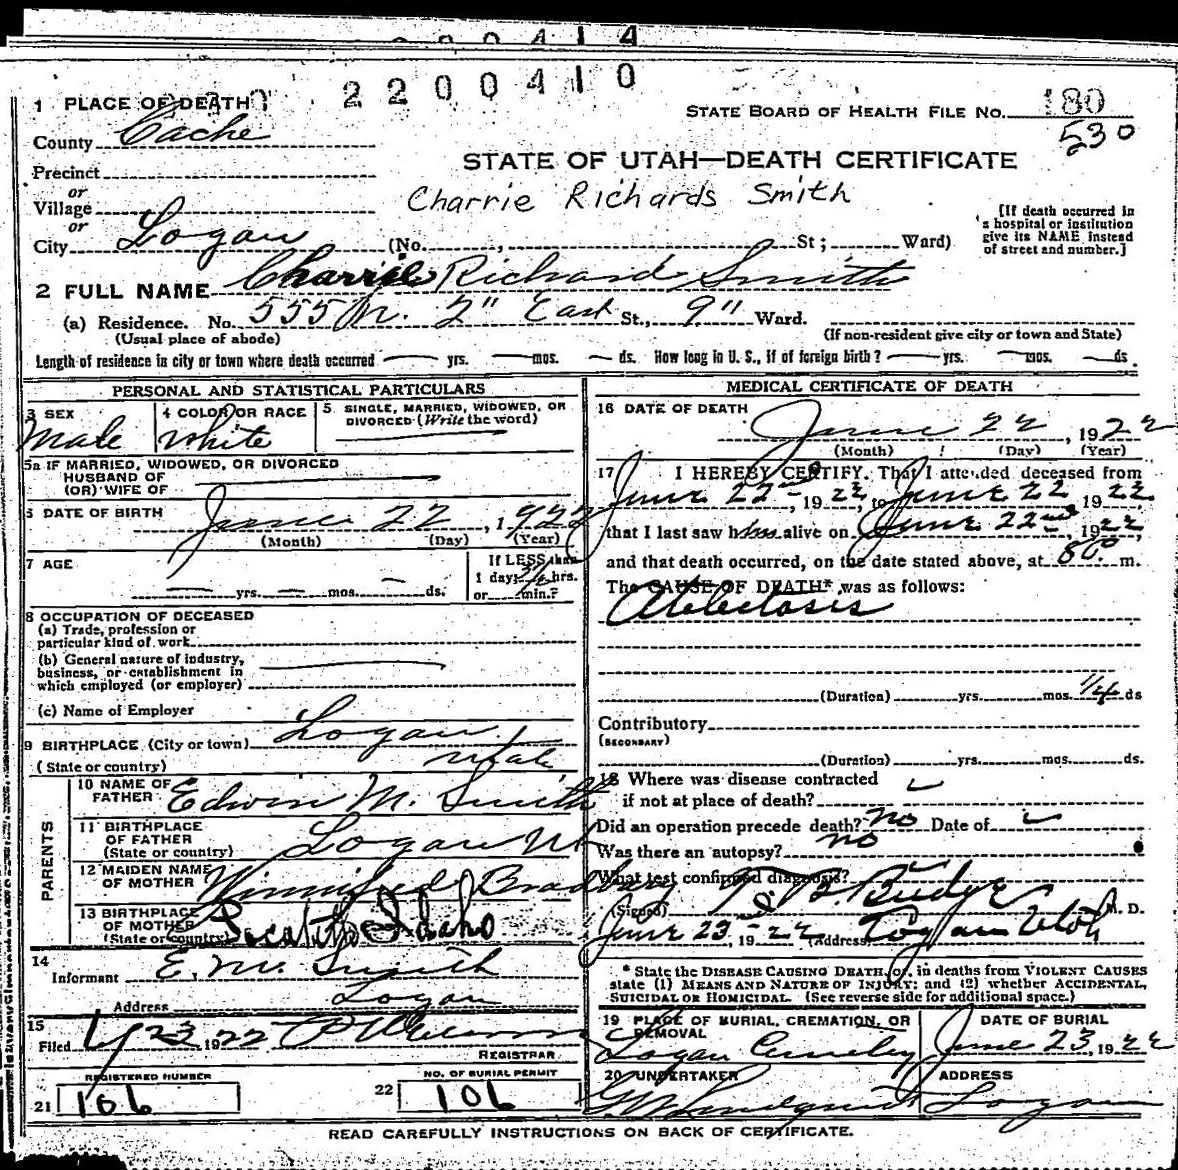 2 2 0 0 4 1 0
1 PLACE OF DEATH
STATE BOARD OF HEALTH FILE No. 180
County Cache
530
STATE OF UTAH—DEATH CERTIFICATE
Precinct
or
Village
Charrie Richards Smith
or
City Logan (No. , St; Ward)
[If death occurred in
a hospital or institution
give its NAME instead
of street and number.]
2 FULL NAME Charrie Richard Smith
(a) Residence. No. 555 N. 2" East St., 9" Ward.
(Usual place of abode)
(If non-resident give city or town and State)
Length of residence in city or town where death occurred — yrs. — mos. — ds. How long in U. S., if of foreign birth? — yrs. — mos. — ds
PERSONAL AND STATISTICAL PARTICULARS
3 SEX
Male
4 COLOR OR RACE
White
5 SINGLE, MARRIED, WIDOWED, OR
DIVORCED (Write the word)
5a IF MARRIED, WIDOWED, OR DIVORCED
HUSBAND OF
(OR) WIFE OF
6 DATE OF BIRTH June 22, 1922
(Month) (Day) (Year)
7 AGE
— yrs. — mos. — ds.
If LESS than
1 day, hrs.
or min.?
8 OCCUPATION OF DECEASED
(a) Trade, profession or
particular kind of work
(b) General nature of industry,
business, or establishment in
which employed (or employer)
(c) Name of Employer
9 BIRTHPLACE (City or town) Logan,
(State or country) Utah
PARENTS
10 NAME OF
FATHER Edwin M. Smith
11 BIRTHPLACE
OF FATHER
(State or country) Logan Ut
12 MAIDEN NAME
OF MOTHER Winnifred Bradbury
13 BIRTHPLACE
OF MOTHER
(State or country) Pocatello Idaho
14
Informant E. M. Smith
Address Logan
15
Filed 23, 1922
REGISTRAR
REGISTERED NUMBER
21 106
NO. OF BURIAL PERMIT
22 106
MEDICAL CERTIFICATE OF DEATH
16 DATE OF DEATH
June 22, 1922
(Month) (Day) (Year)
17 I HEREBY CERTIFY. That I attended deceased from
June 22, 1922, to June 22, 1922,
that I last saw him alive on June 22nd, 1922,
and that death occurred, on the date stated above, at m.
The CAUSE OF DEATH* was as follows:
Atelectasis
(Duration) yrs. mos. 1/4 ds
Contributory
(SECONDARY)
(Duration) yrs. mos. ds.
18 Where was disease contracted
if not at place of death?
Did an operation precede death? no Date of
Was there an autopsy? no
What test confirmed diagnosis?
(Signed) Budge M. D.
June 23, 1922 (Address) Logan Utah
* State the DISEASE CAUSING DEATH, or, in deaths from VIOLENT CAUSES
state (1) MEANS AND NATURE OF INJURY; and (2) whether ACCIDENTAL,
SUICIDAL or HOMICIDAL. (See reverse side for additional space.)
19 PLACE OF BURIAL, CREMATION, OR
REMOVAL
Logan Cemetery
DATE OF BURIAL
June 23, 1922
20 UNDERTAKER
ADDRESS
Logan
READ CAREFULLY INSTRUCTIONS ON BACK OF CERTIFICATE.